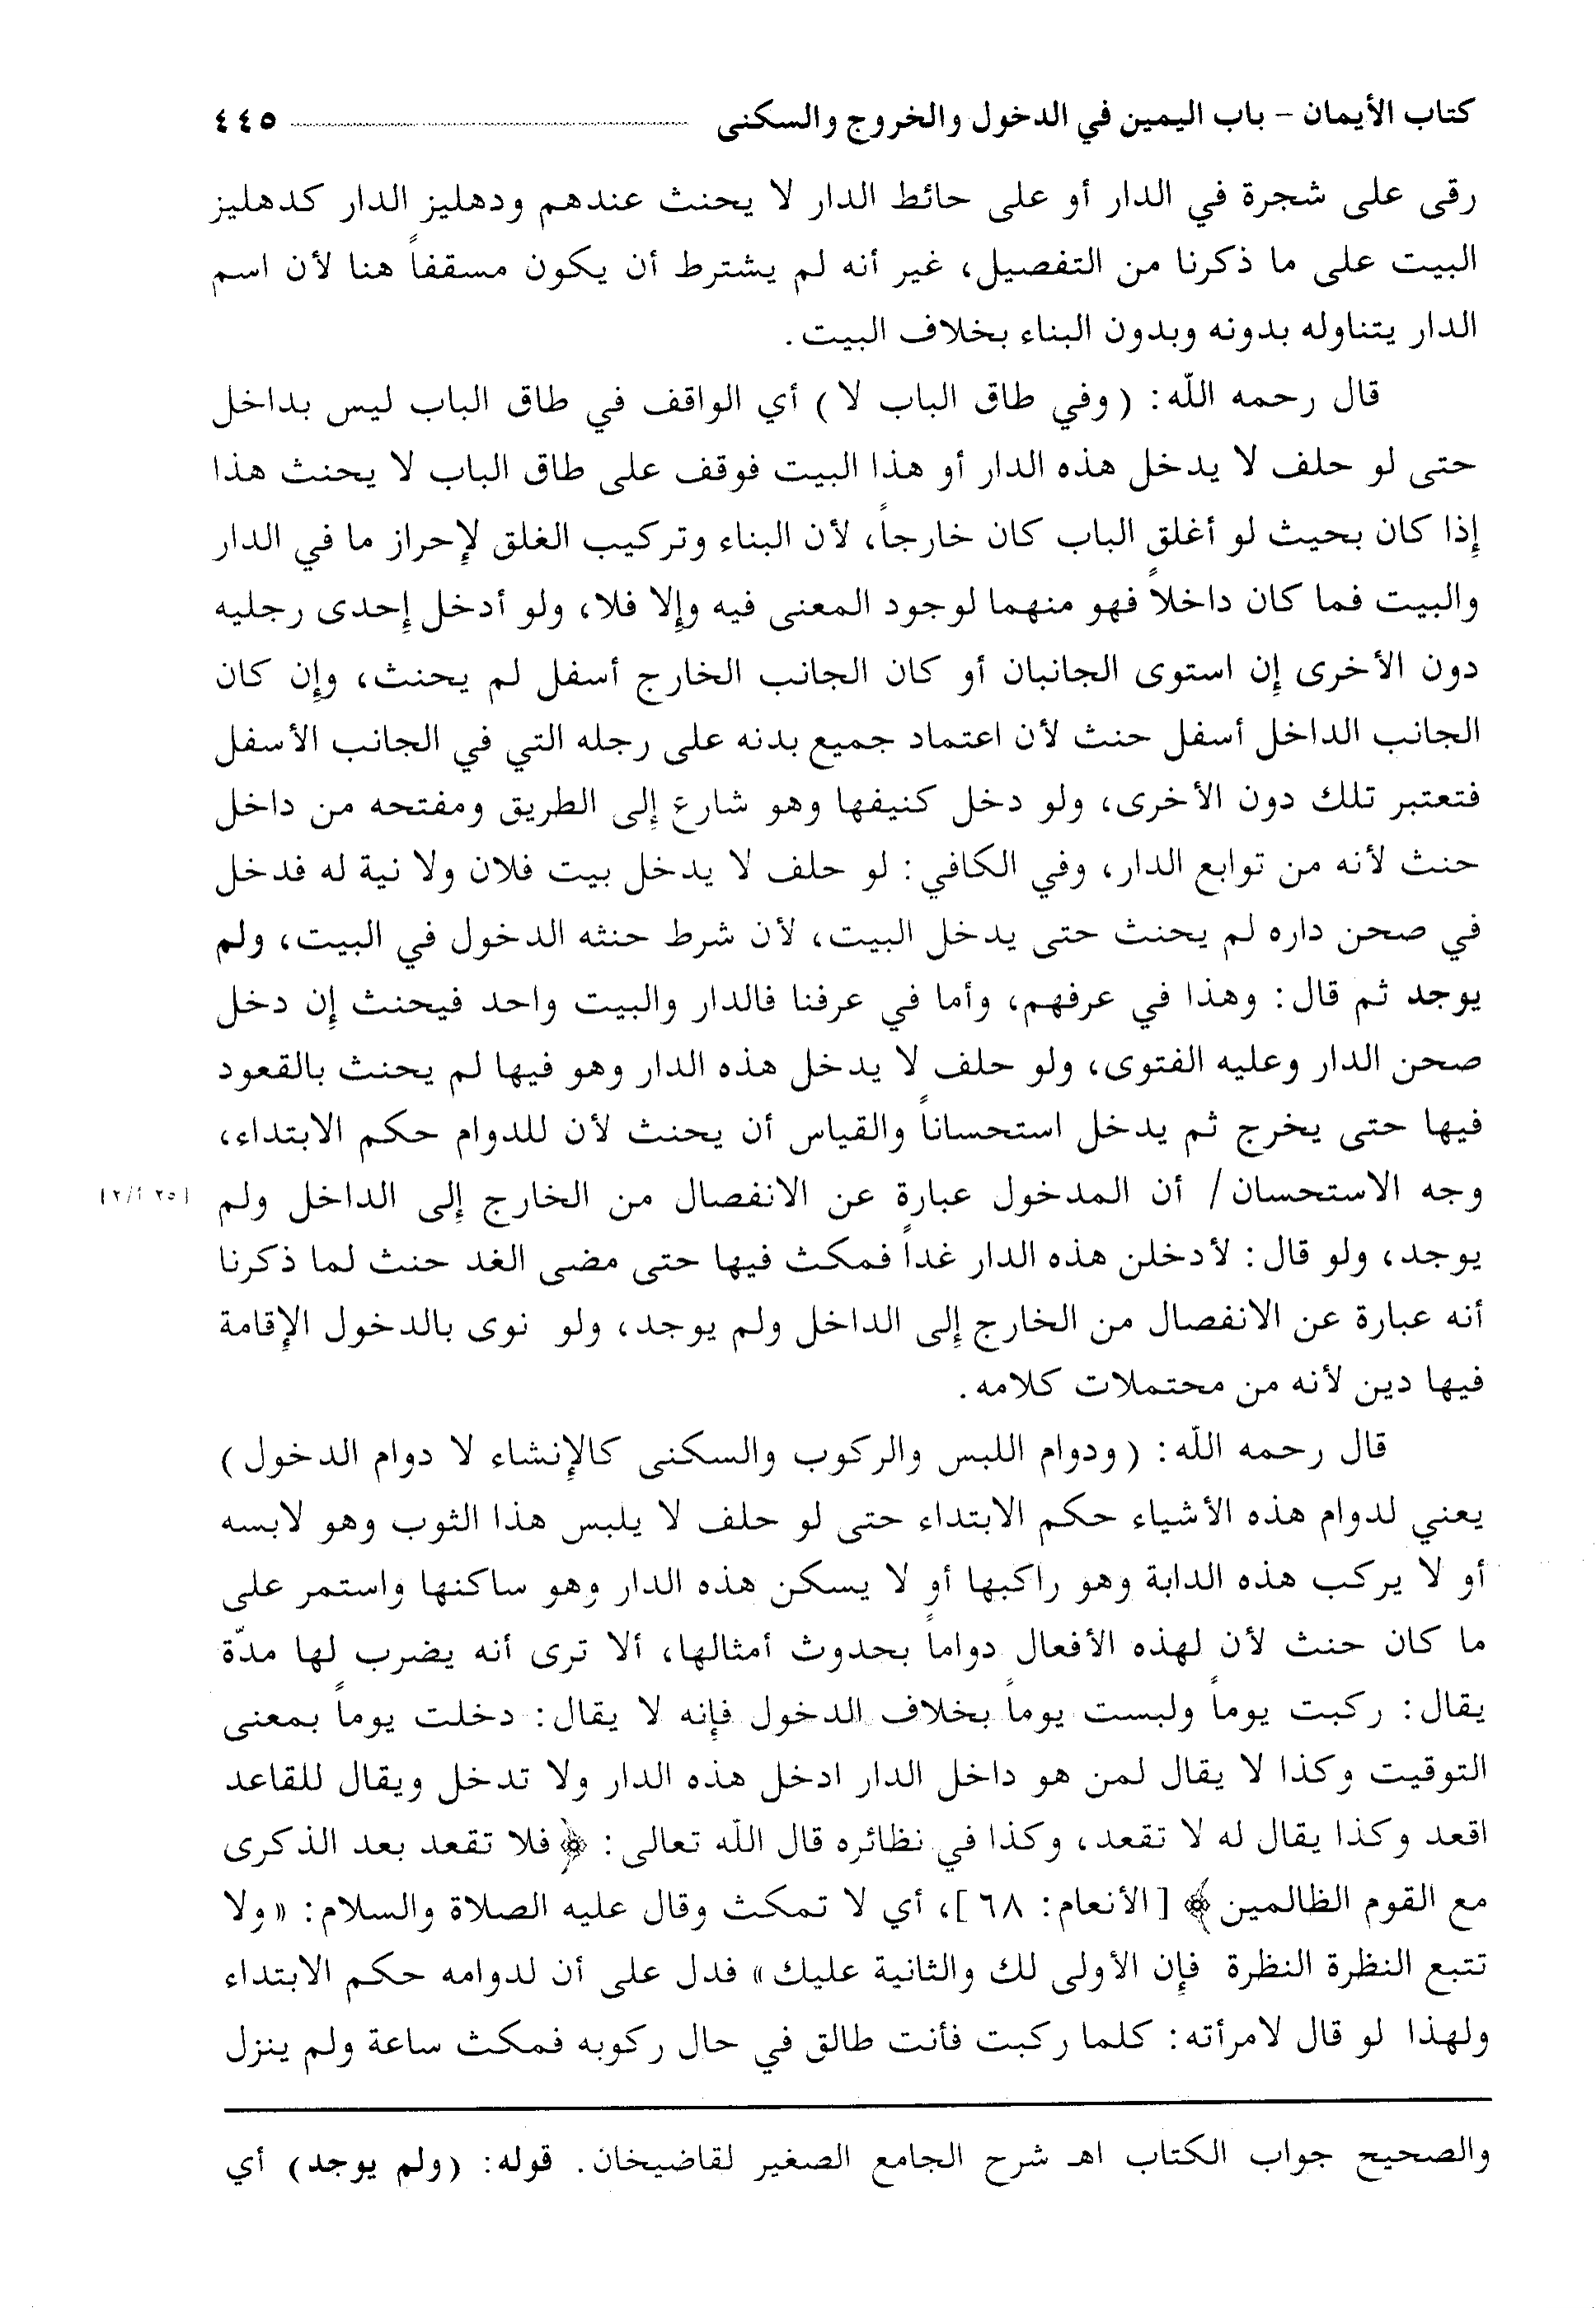 كتاب الأيمان - باب اليمين في الدخول والخروج والسكنى ٤٤٥
رقى على شجرة في الدار أو على حائط الدار لا يحنث عندهم ودهليز الدار كدهليز
البيت على ما ذكرنا من التفصيل، غير أنه لم يشترط أن يكون مسقفاً هنا لأن اسم
الدار يتناوله بدونه وبدون البناء بخلاف البيت.
قال رحمه الله: (وفي طاق الباب لا) أي الواقف في طاق الباب ليس بداخل
حتى لو حلف لا يدخل هذه الدار أو هذا البيت فوقف على طاق الباب لا يحنث هذا
إذا كان بحيث لو أغلق الباب كان خارجاً، لأن البناء وتركيب الغلق لإحراز ما في الدار
والبيت فما كان داخلاً فهو منهما لوجود المعنى فيه وإلا فلا، ولو أدخل إحدى رجليه
دون الأخرى إن استوى الجانبان أو كان الجانب الخارج أسفل لم يحنث، وإن كان
الجانب الداخل أسفل حنث لأن اعتماد جميع بدنه على رجله التي في الجانب الأسفل
فتعتبر تلك دون الأخرى، ولو دخل كنيفها وهو شارع إلى الطريق ومفتحه من داخل
حنث لأنه من توابع الدار، وفي الكافي: لو حلف لا يدخل بيت فلان ولا نية له فدخل
في صحن داره لم يحنث حتى يدخل البيت، لأن شرط حنثه الدخول في البيت، ولم
يوجد ثم قال: وهذا في عرفهم، وأما في عرفنا فالدار والبيت واحد فيحنث إن دخل
صحن الدار وعليه الفتوى، ولو حلف لا يدخل هذه الدار وهو فيها لم يحنث بالقعود
فيها حتى يخرج ثم يدخل استحساناً والقياس أن يحنث لأن للدوام حكم الابتداء،
وجه الاستحسان/ أن المدخول عبارة عن الانفصال من الخارج إلى الداخل ولم [٢٥ أ/٢]
يوجد، ولو قال: لأدخلن هذه الدار غداً فمكث فيها حتى مضى الغد حنث لما ذكرنا
أنه عبارة عن الانفصال من الخارج إلى الداخل ولم يوجد، ولو نوى بالدخول الإقامة
فيها دين لأنه من محتملات كلامه.
قال رحمه الله: (ودوام اللبس والركوب والسكنى كالإنشاء لا دوام الدخول)
يعني لدوام هذه الأشياء حكم الابتداء حتى لو حلف لا يلبس هذا الثوب وهو لابسه
أو لا يركب هذه الدابة وهو راكبها أو لا يسكن هذه الدار وهو ساكنها واستمر على
ما كان حنث لأن لهذه الأفعال دواماً بحدوث أمثالها، ألا ترى أنه يضرب لها مدّة
يقال: ركبت يوماً ولبست يوماً بخلاف الدخول فإنه لا يقال: دخلت يوماً بمعنى
التوقيت وكذا لا يقال لمن هو داخل الدار ادخل هذه الدار ولا تدخل ويقال للقاعد
اقعد وكذا يقال له لا تقعد، وكذا في نظائره قال الله تعالى: ﴿فلا تقعد بعد الذكرى
مع القوم الظالمين﴾ [الأنعام: ٦٨]، أي لا تمكث وقال عليه الصلاة والسلام: «ولا
تتبع النظرة النظرة فإن الأولى لك والثانية عليك» فدل على أن لدوامه حكم الابتداء
ولهذا لو قال لامرأته: كلما ركبت فأنت طالق في حال ركوبه فمكث ساعة ولم ينزل
والصحيح جواب الكتاب اهـ شرح الجامع الصغير لقاضيخان. قوله: (ولم يوجد) أي